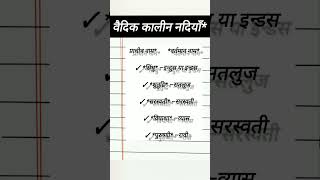 वैदिक कालीन नदियाँ*
प्राचीन नाम* *वर्तमान नाम*
✓*सिंधु*-इन्डस या इन्डस
✓*शुतुद्रि*-सतलुज
✓*सरस्वती*-सरस्वती
✓*विपाशा*-व्यास
✓*पुरुष्णी*-रावी
या इन्डस
तलुज
सरस्वती
व्यास